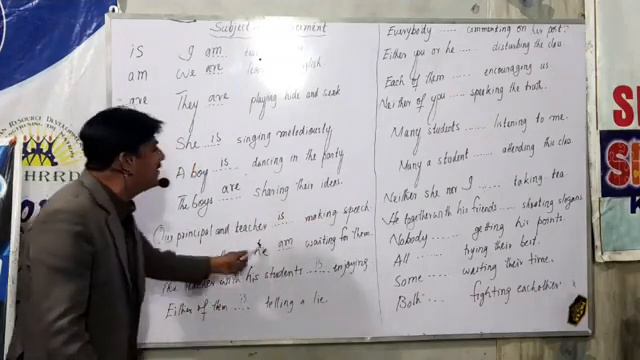 Subject
is
am
are
I am
We are
They are playing hide and seek
She is singing melodiously
A boy is dancing in the party
The boys are sharing their ideas.
principal and teacher is making speech
am waiting for them
with his students is enjoying
Either of them is telling a lie.
Everybody ..... commenting on her post.
Either you or he ..... disturbing the class
Each of them ..... encouraging us
Neither of you ..... speaking the truth.
Many students ...... listening to me.
Many a student ...... attending this class
Neither she nor I ...... taking tea
He together with his friends ..... shouting slogans
Nobody ...... getting his points.
All ..... trying their best.
Some .... wasting their time.
Both .... fighting eachother
HRRD